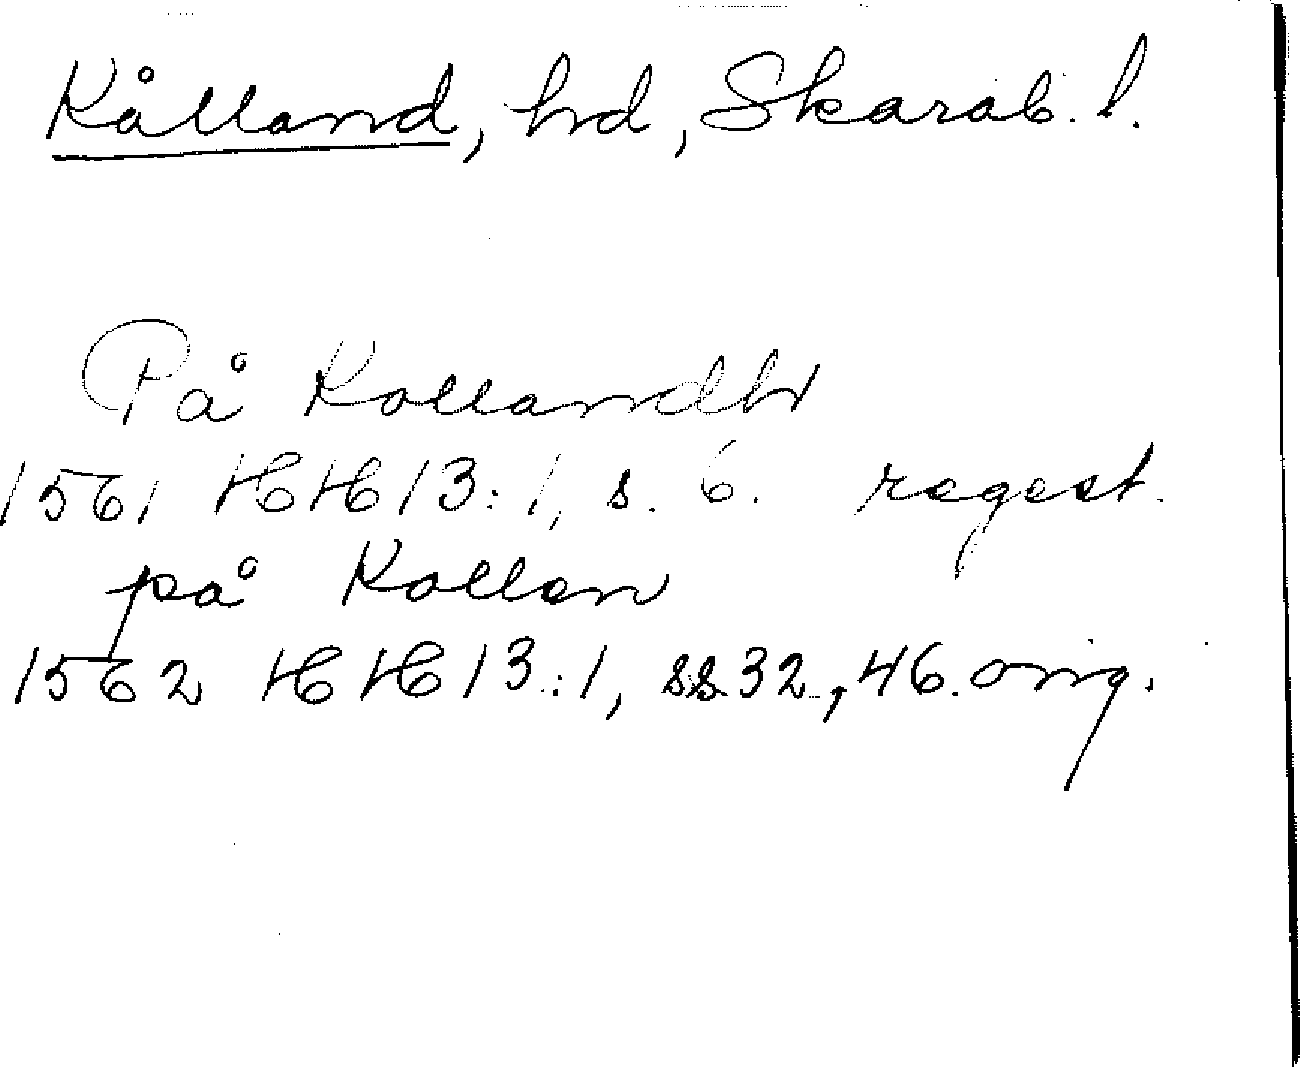 Kålland, hd, Skarab. l.
På Kollandh
1561 HH 13:1, s. 6. regest.
på Kollan
1562 HH 13:1, ss 32, 46. orig.